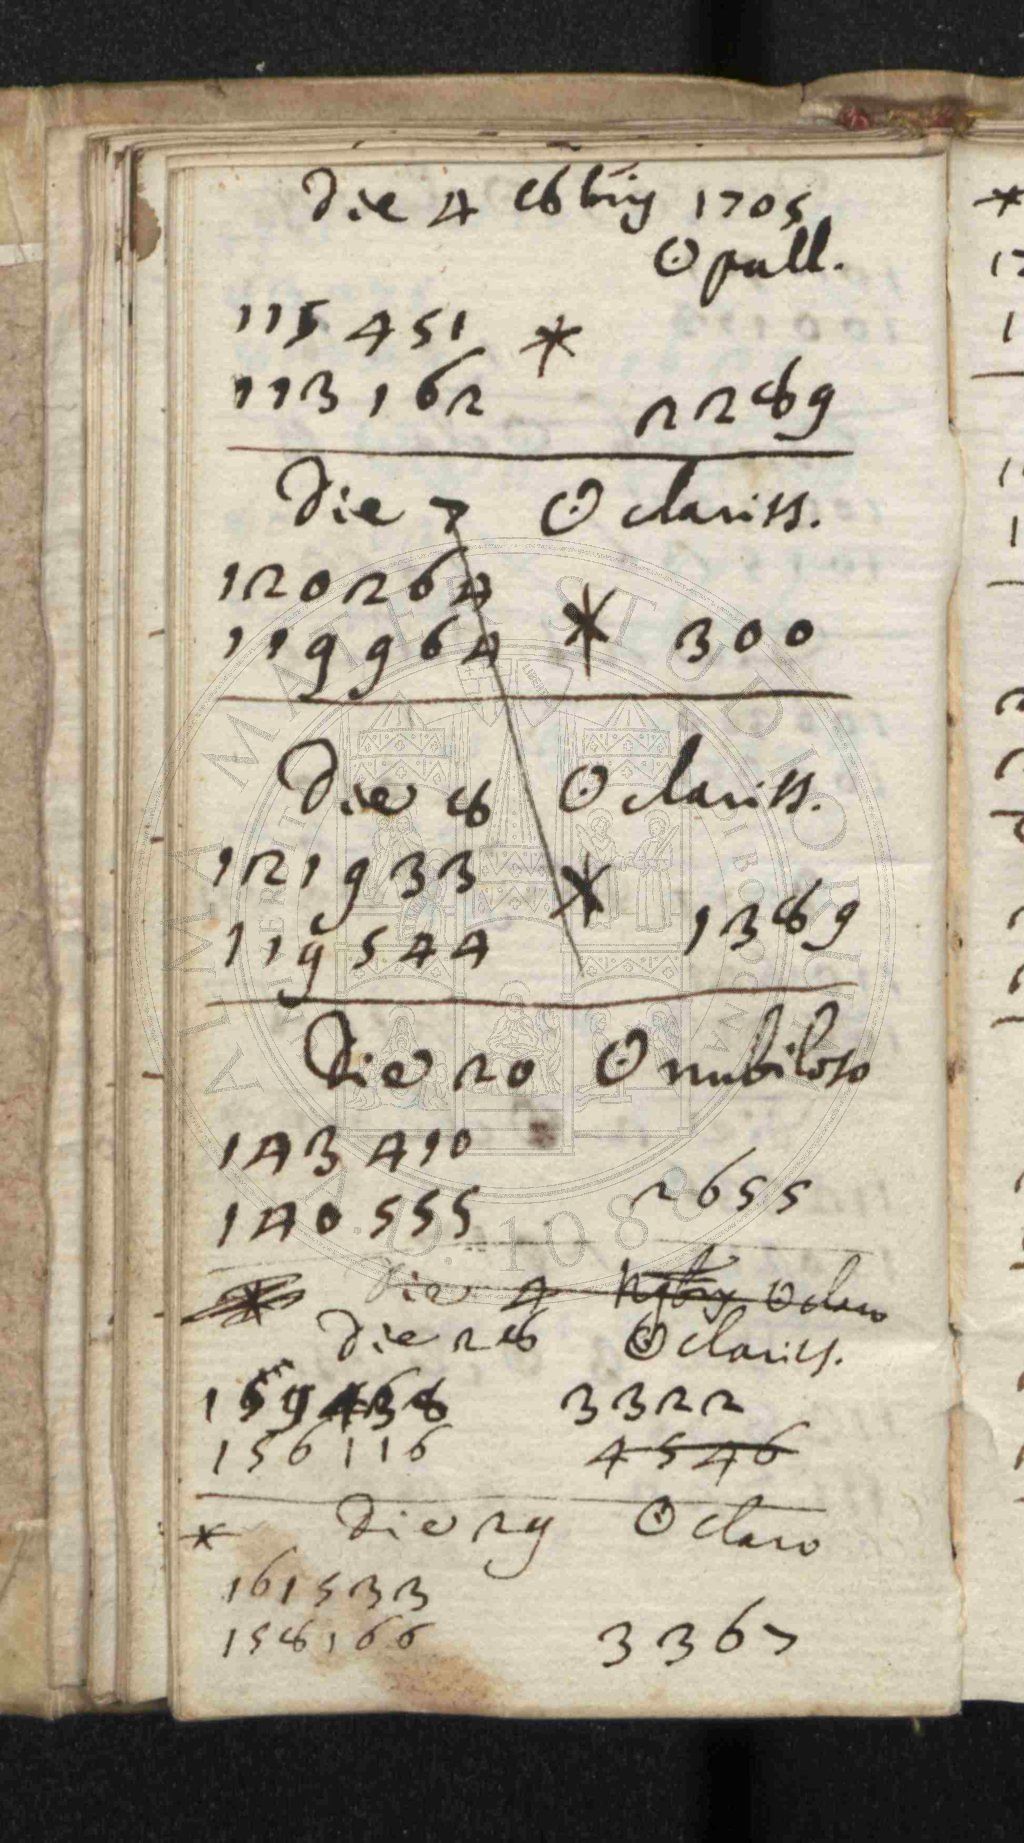 Die 4 8bris 1705
☉ pall.
115451 *
113162 2289
Die 7 ☉ clariss.
120264
119964 * 300
Die 8 ☉ clariss.
121933 *
119544 1389
Die 20 ☉ nubiloso
143410
140555 2655
* Die 4 9bris ☉ claro
Die 28 ☉ clariss.
159438 3322
156116 4546
* Die 29 ☉ claro
161533
158166 3367
ALMA MATER STUDIORUM
A.D. 1088